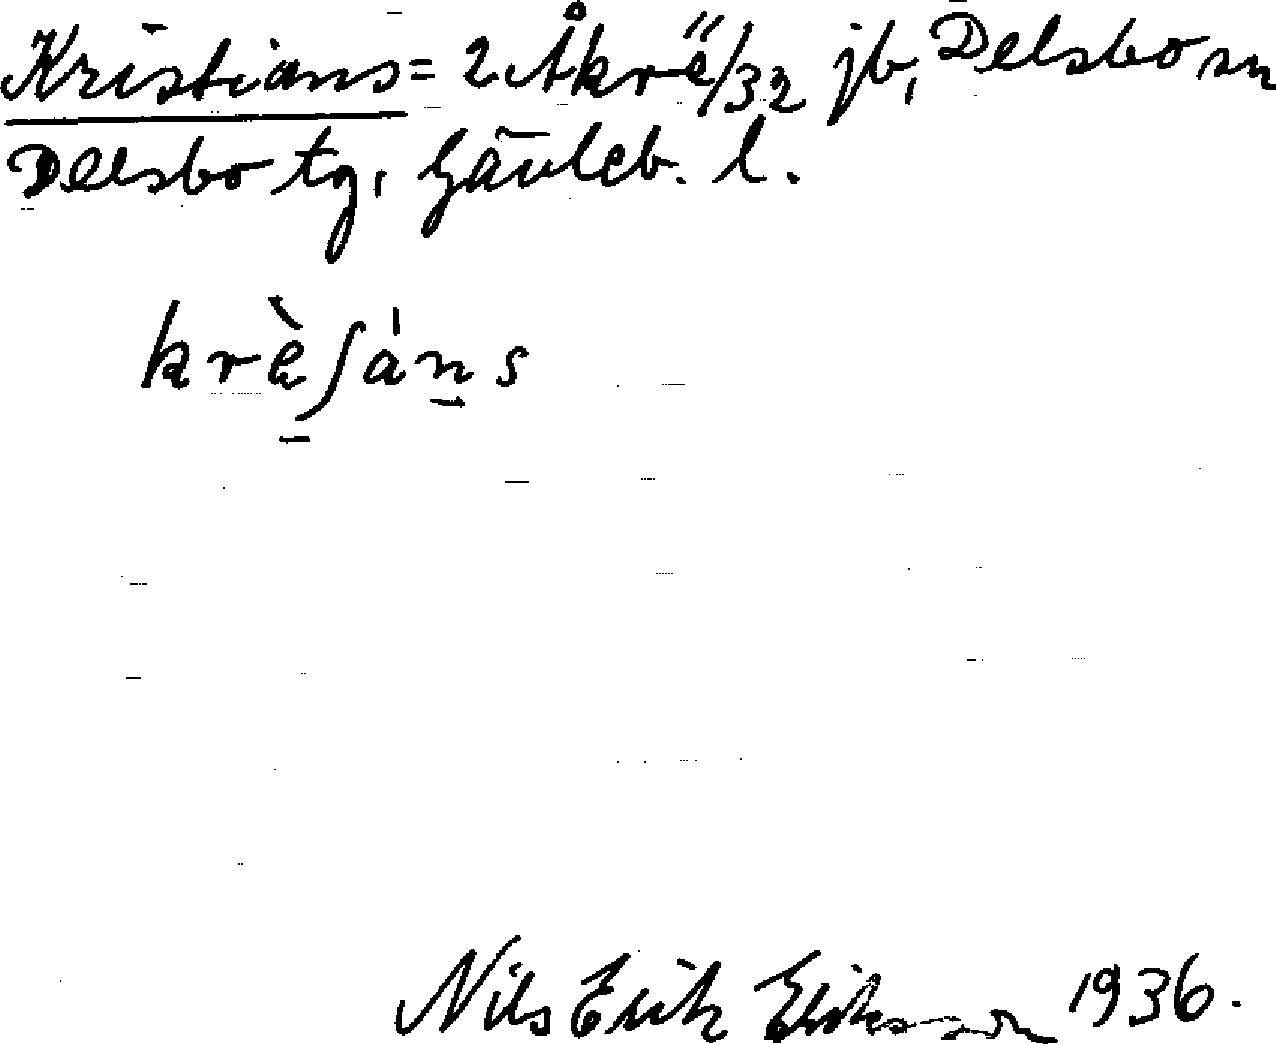 Kristians = 2 Åkre 11/32 jb, Delsbo sn
Delsbo tg, Gävleb. l.
krèʃáns
Nils Erik Eriksson 1936.